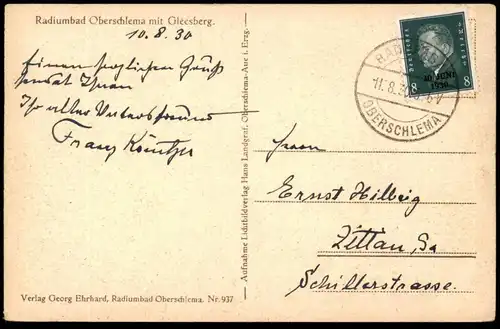 Radiumbad Oberschlema mit Gleesberg.
10. 8. 30
Einen herzlichen Gruß
sendet Ihnen
Ihr alter
Franz
Aufnahme Lichtbildverlag Hans Landgraf, Oberschlema-Aue i. Erzg.
Verlag Georg Ehrhard, Radiumbad Oberschlema. Nr. 937
8 8
30. JUNI
1930
11.8.30
OBERSCHLEMA
Herrn
Ernst Hilbig
Zittau, Sa
Schillerstrasse.